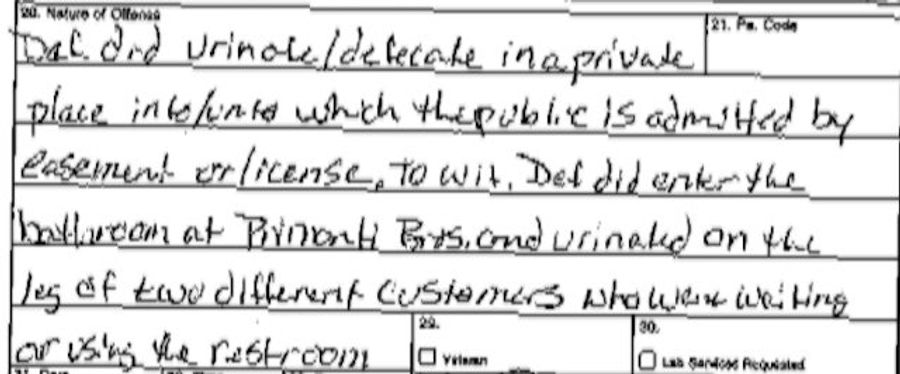 20. Nature of Offense
21. Pa. Code
Def. did urinate/defecate in a private
place into/unto which the public is admitted by
easement or license, To wit, Def did enter the
bathroom at Primanti Bros. and urinated on the
leg of two different customers who were waiting
or using the restroom
29.
Veteran
30.
Lab Services Requested